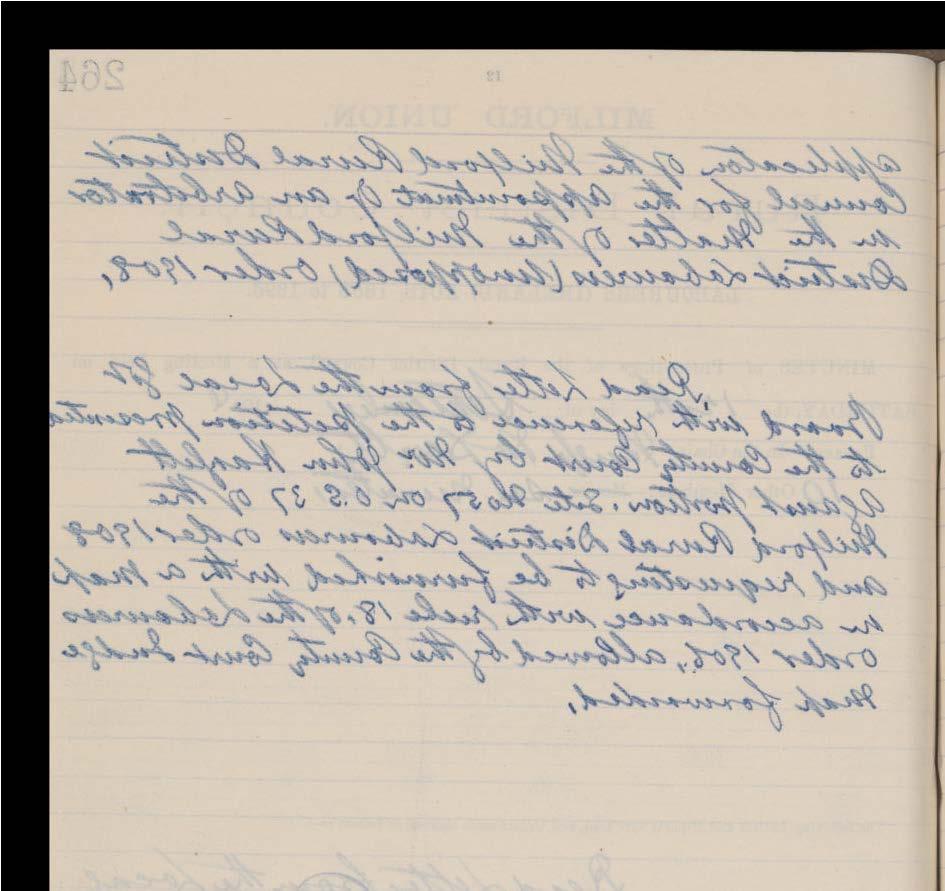 264
12
MILFORD UNION.
application of the Milford Rural District
Council for the appointment of an arbitrator
in the Matter of the Milford Rural
District Labourers (Unopposed) Order 1908,
LABOURERS (IRELAND) ACTS, 1883 to 1896.
Read Letter from the Local Gov
Board with reference to the petition presented
to the County Court by Mr. John Hazlett
against portion. Site No 57 on O.S. 37 of the
Milford Rural District Labourers order 1908
and requesting to be furnished with a map
in accordance with rule 18. of the Labourers
order 1906, allowed by the County Court Judge
Map forwarded.
Read Letter from the Local